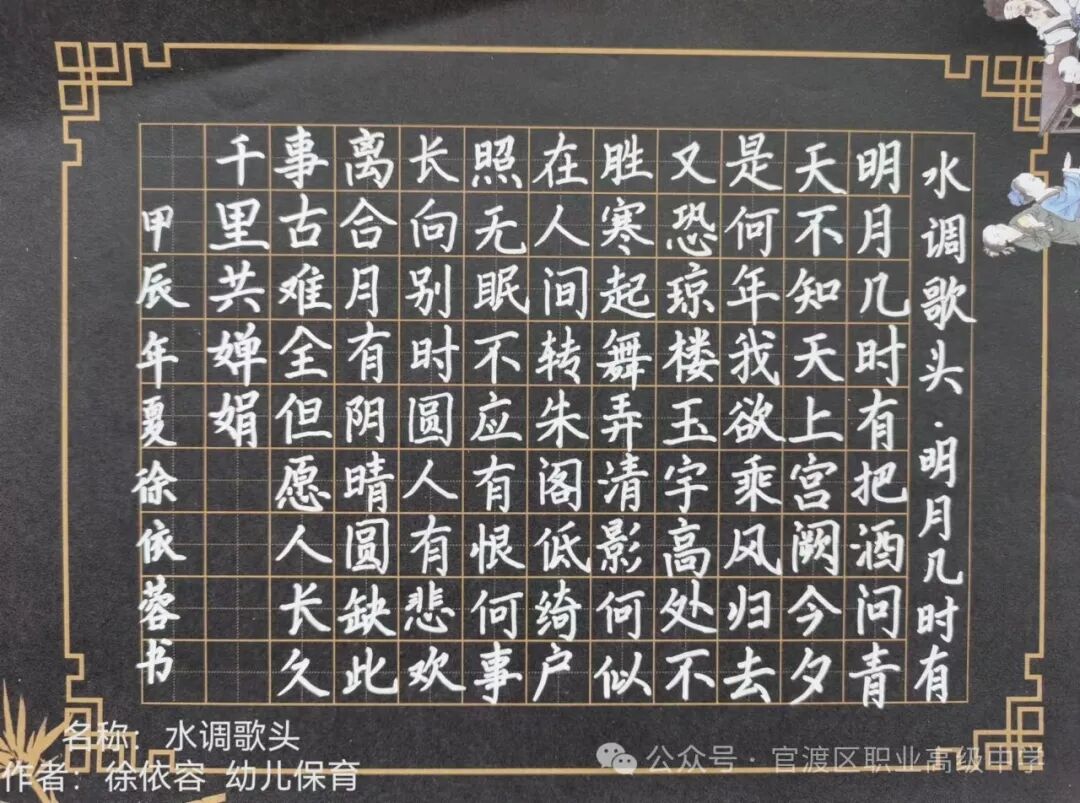 水调歌头·明月几时有
明月几时有把酒问青
天不知天上宫阙今夕
是何年我欲乘风归去
又恐琼楼玉宇高处不
胜寒起舞弄清影何似
在人间转朱阁低绮户
照无眠不应有恨何事
长向别时圆人有悲欢
离合月有阴晴圆缺此
事古难全但愿人长久
千里共婵娟
甲辰年夏徐依蓉书
名称：水调歌头
作者：徐依容 幼儿保育
公众号·官渡区职业高级中学